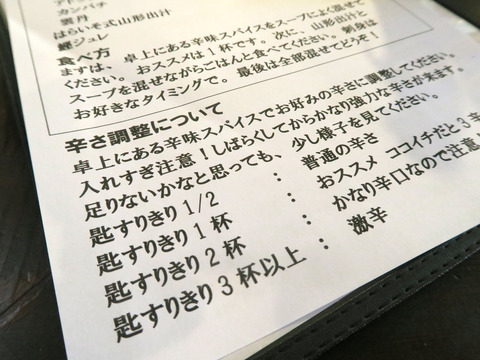 カンパチ
雲丹
はらいそ式山形出汁
鰹ジュレ
食べ方
まずは、卓上にある辛味スパイスをスープによく混ぜて
ください。おススメは1杯です。次に、山形出汁と
スープを混ぜながらごはんと食べてください。刺身は
お好きなタイミングで。最後は全部混ぜてどうぞ!
辛さ調整について
卓上にある辛味スパイスでお好みの辛さに調整してください。
入れすぎ注意!しばらくしてからかなり強力な辛さが来ます。
足りないかなと思っても、少し様子を見てください。
匙すりきり1/2 : 普通の辛さ
匙すりきり1杯 : おススメ ココイチだと3辛
匙すりきり2杯 : かなり辛口なので注意
匙すりきり3杯以上 : 激辛